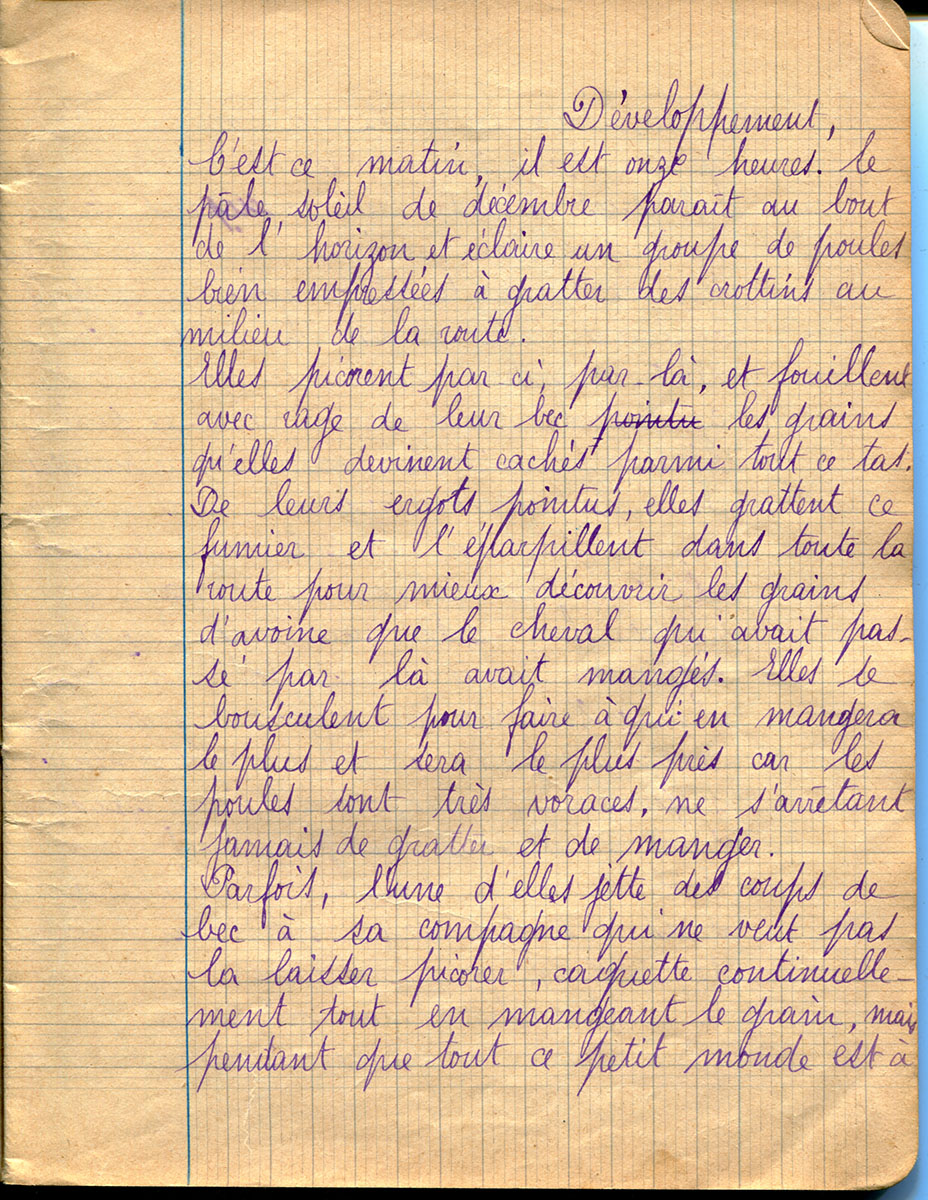 Développement,
C'est ce matin, il est onze heures. Le
pâle soleil de décembre paraît au bout
de l'horizon et éclaire un groupe de poules
bien empressées à gratter des crottins au
milieu de la route.
Elles picorent par ci, par-là, et fouillent
avec rage de leur bec pointu les grains
qu'elles devinent cachés parmi tout ce tas.
De leurs ergots pointus, elles grattent ce
fumier et l'éparpillent dans toute la
route pour mieux découvrir les grains
d'avoine que le cheval qui avait pas-
sé par là avait mangés. Elles se
bousculent pour faire à qui en mangera
le plus et sera le plus près car les
poules sont très voraces, ne s'arrêtant
jamais de gratter et de manger.
Parfois, l'une d'elles jette des coups de
bec à sa compagne qui ne veut pas
la laisser picorer, caquette continuelle-
ment tout en mangeant le grain, mais
pendant que tout ce petit monde est à